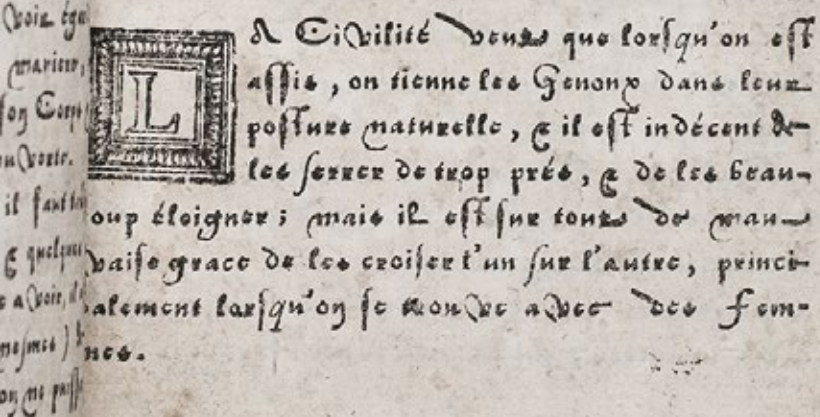 voir éga
marieur,
son Corps
ouverte.
il faut ta
& quelques
e a voir, il
mesmes )
on ne puisse
LA Civilité veut que lorsqu'on est
assis, on tienne les Genoux dans leur
posture naturelle, & il est indécent de
les serrer de trop prés, & de les beau-
oup éloigner ; mais il est sur tout de mau-
vaise grace de les croiser l'un sur l'autre, princi-
alement lorsqu'on se trouve avec des Fem-
nes.